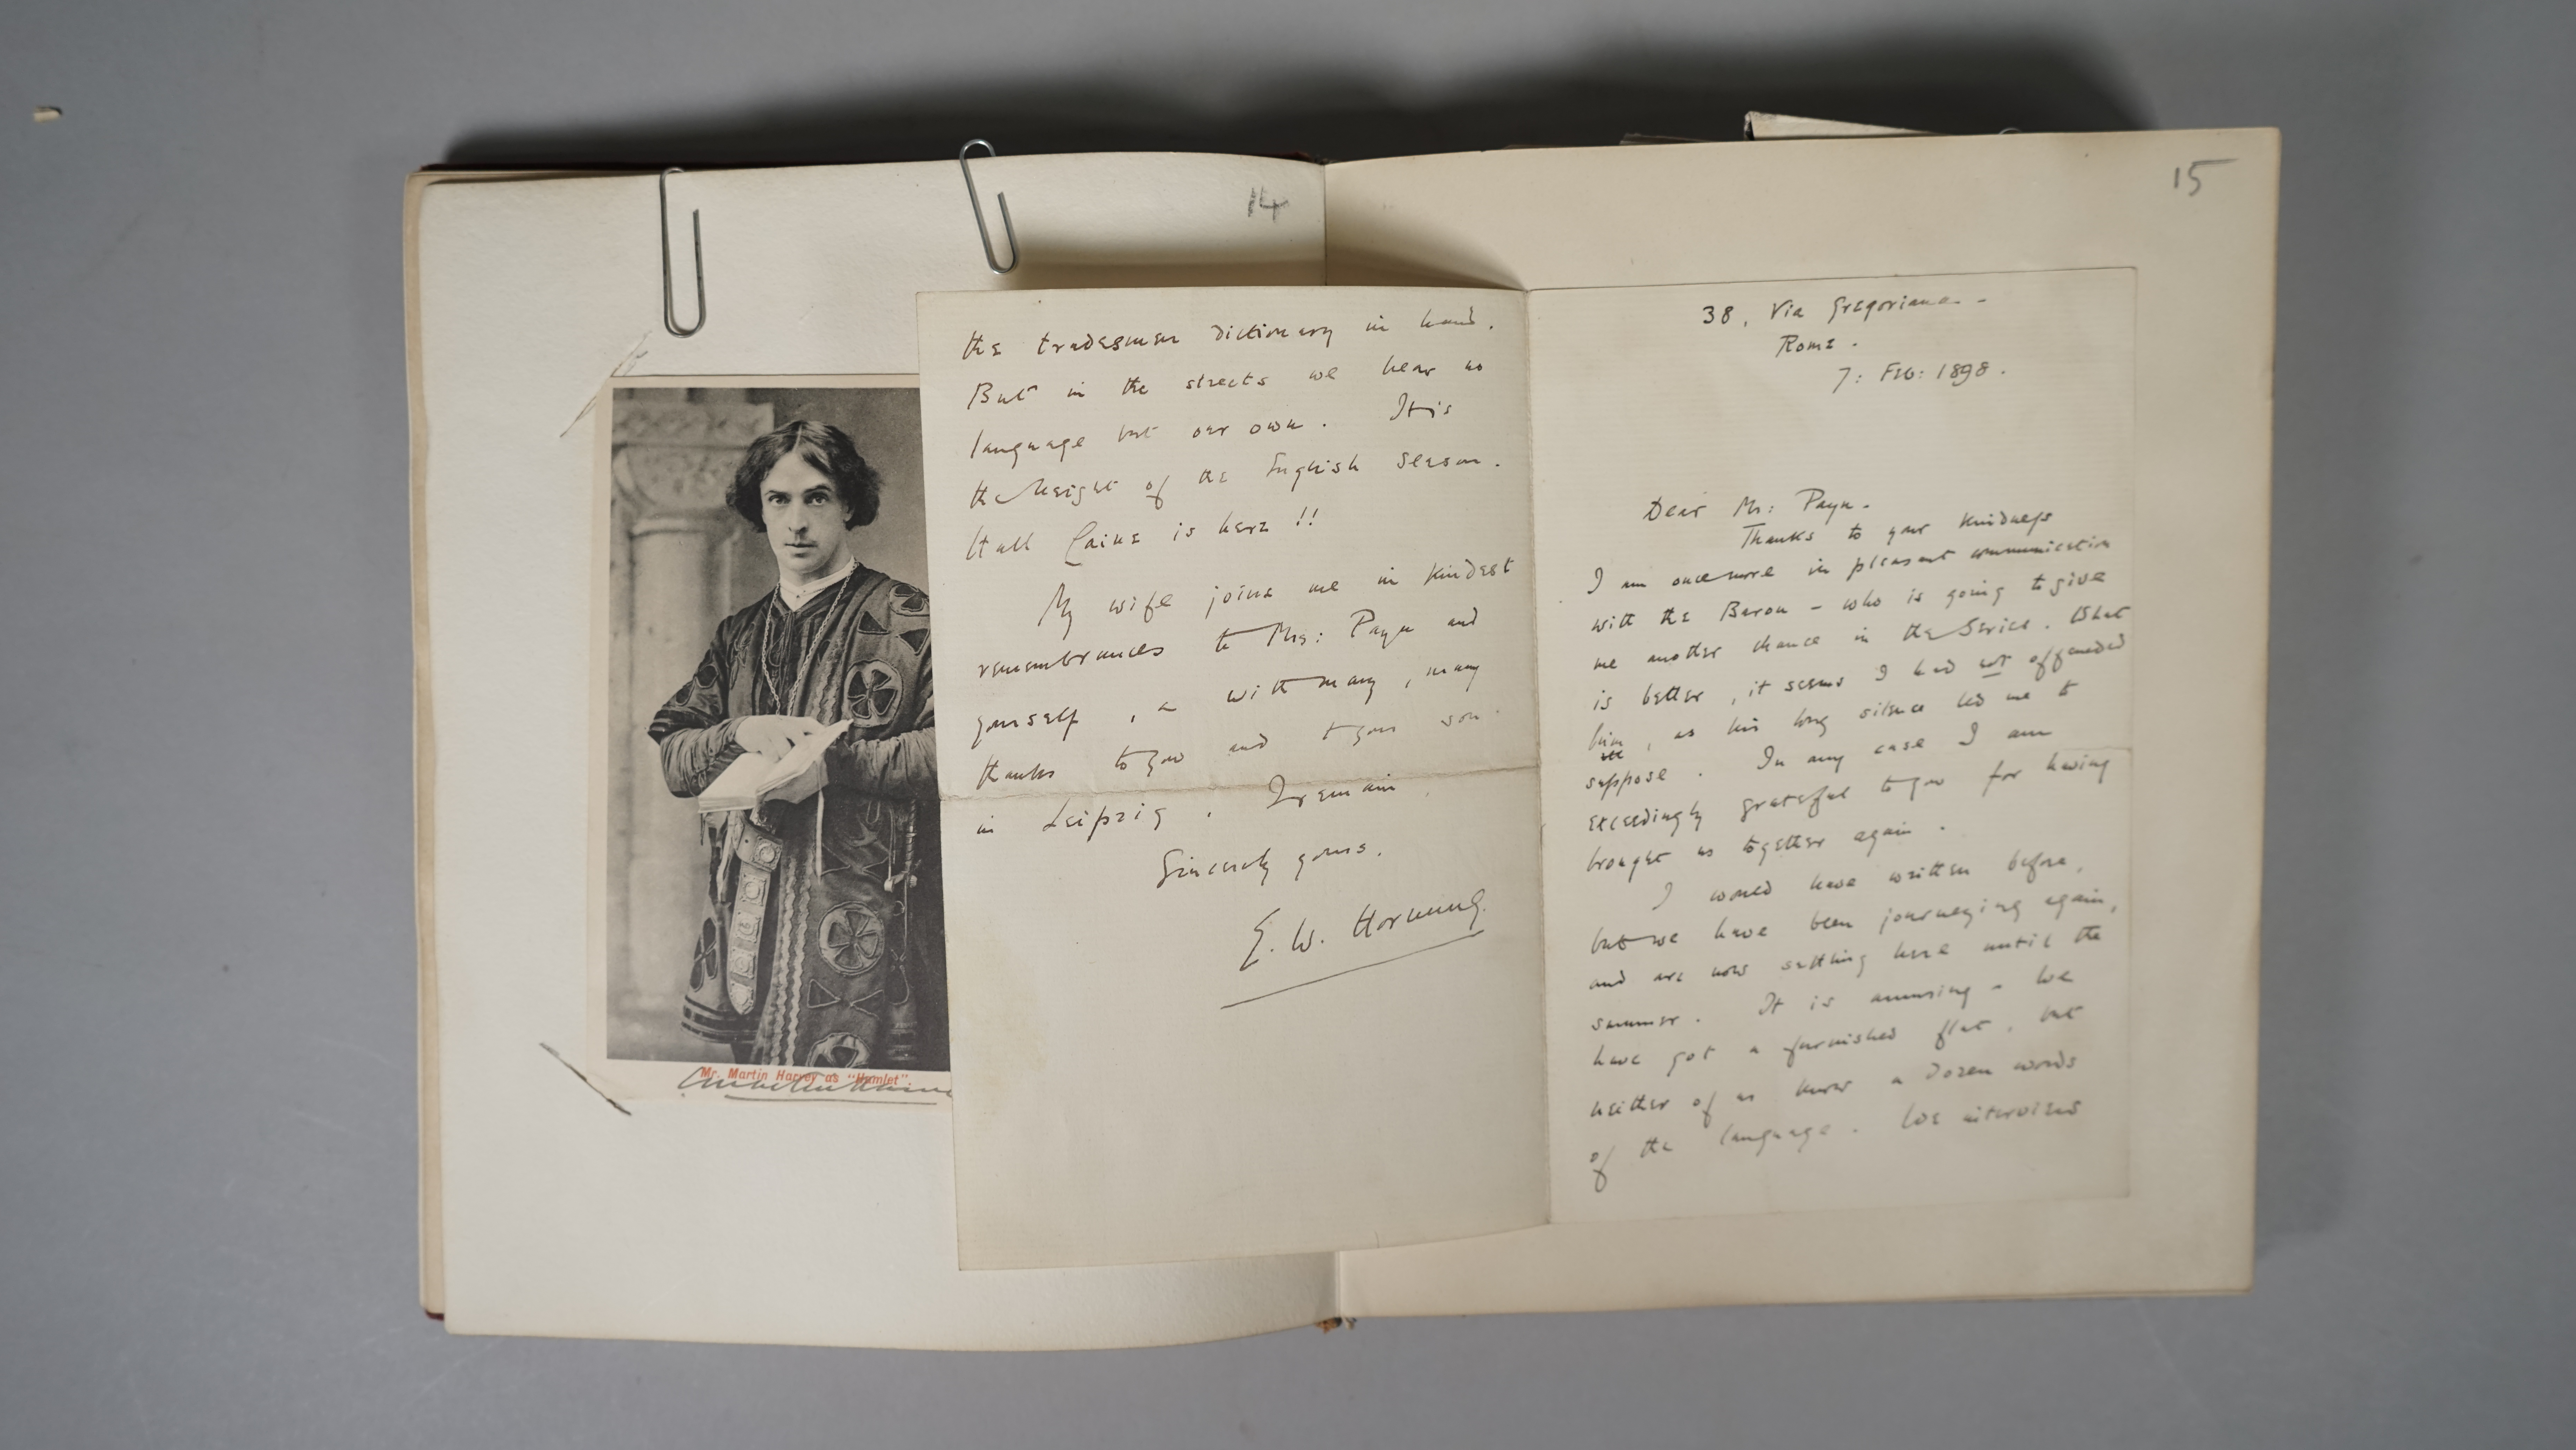 14
Mr. Martin Harvey as "Hamlet"
the tradesmen dictionary in hand.
But in the streets we hear no
language but our own. It is
the height of the English season.
Hall Caine is here !!
My wife joins me in kindest
remembrances to Mrs: Payn and
yourself, & with many, many
thanks to you and to your son
in Leipzig, I remain,
Sincerely yours,
E. W. Hornung.
15
38, Via Gregoriana -
Rome.
7: Feb: 1898.
Dear Mr: Payn.
Thanks to your kindness
I am once more in pleasant communication
with the Baron - who is going to give
me another chance in the Series. What
is better, it seems I had not offended
him, as his long silence led me to
suppose. In any case I am
exceedingly grateful to you for having
brought us together again.
I would have written before,
but we have been journeying again,
and are now settling here until the
summer. It is amusing - We
have got a furnished flat, but
neither of us know a dozen words
of the language. We interview